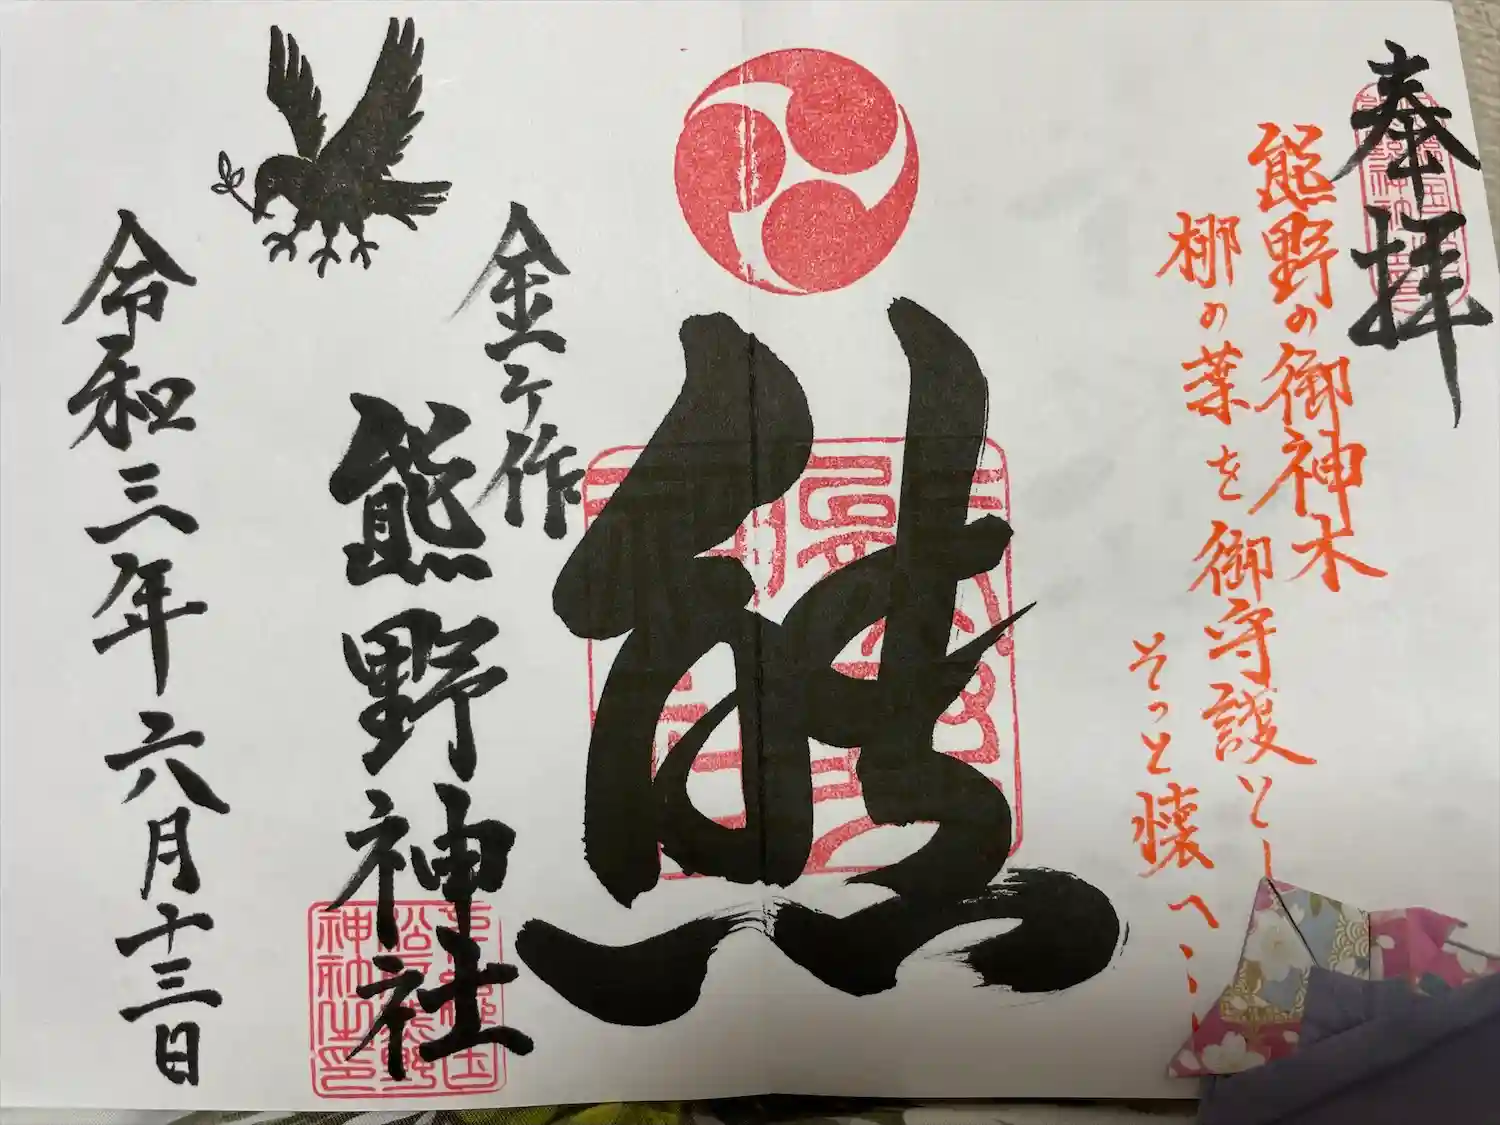 奉拝
熊野の御神木
梛の葉を御守護とし
そっと懐へ
熊
金ケ作
熊野神社
令和三年六月十三日